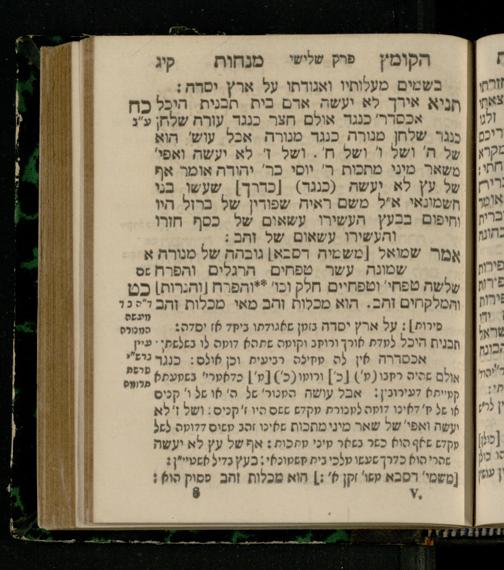 הקומץ פרק שלישי מנחות קיג
בשמים מעלותיו ואגודתו על ארץ יסדה :
תניא אידך לא יעשה אדם בית תבנית היכל כח
אכסדרי כנגד אולם חצר כנגד עזרה שלחן ע״ב
כנגד שלחן מנורה כנגד מנורה אבל עוש׳ הוא
של ה׳ ושל ו׳ ושל ח׳. ושל ז׳ לא יעשה ואפי׳
משאר מיני מתכות ר׳ יוסי בר׳ יהודה אומר אף
של עץ לא יעשה (כנגד) [כדרך] שעשו בני
חשמונאי א״ל משם ראיה שפודין של ברזל היו
וחיפום בבעץ העשירו עשאום של כסף חזרו
והעשירו עשאום של זהב :
אמר שמואל [משמיה דסבא] גובהה של מנורה א
שמונה עשר טפחים הרגלים והפרח שם
שלשה טפחי׳ וטפחיים חלק וכו׳ **והפרח [והנרות] כט
והמלקחים זהב. הוא מכלות זהב מאי מכלות זהב
פירות] : על ארץ יסדה בזמן שאגודתו ביחד אז יסדה:
תבנית היכל למדת אורך ורוחב וקומה שתהא דומה לו
אכסדרה אין לה מחילה רביעית וכן אולם : כנגד
אולם שהיה רחבו (ע׳) [כ׳] ורומו (כ׳) [מ׳] כדאמרי׳
קמייתא דעירובין: אבל עושה המנור׳ של ה׳ או של ו׳ קנים
או של ח׳ דאינו דומה למנורת מקדש ששם היו ז׳ קנים : ושל ז׳ לא
יעשה ואפי׳ של שאר מיני מתכות שאינו זהב משום דדומה לשל
מקדש שאף הוא כשר בשאר מיני מתכות : אף של עץ לא יעשה
שהרי הוא כדרך שעשו מלכי בית חשמונאי: בעץ
[משמי׳ דסבא זקן א׳ :] הוא מכלות זהב פסוק הוא :
8 V.